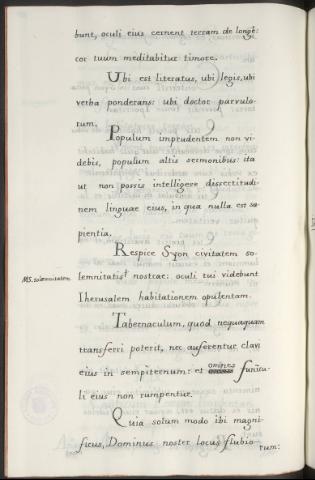 bunt, oculi eius cernent terram de longè:
cor tuum meditabitur timore.
Ubi est literatus, ubi legis, ubi
verba ponderans: ubi doctor parvulo-
rum.
Populum imprudentem non vi-
debis, populum altis sermonibus: ita
ut non possis intelligere dissertitudi-
nem linguae eius, in qua nulla est sa-
pientia.
Respice Syon civitatem so-
lemnitatis nostrae: oculi tui videbunt
MS. solemnitatem
Iherusalem habitationem opulentam.
Tabernaculum, quod nequaquam
transferri poterit, nec auferentur clavi
eius in sempiternum: et omnes funicu-
li eius non rumpentur.
Quia solum modo ibi magni-
ficus, Dominus noster locus flubio-
rum: